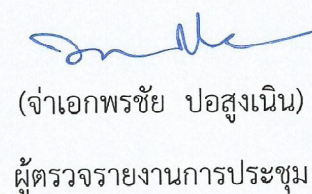 (จ่าเอกพรชัย ปอสูงเนิน)
ผู้ตรวจรายงานการประชุม